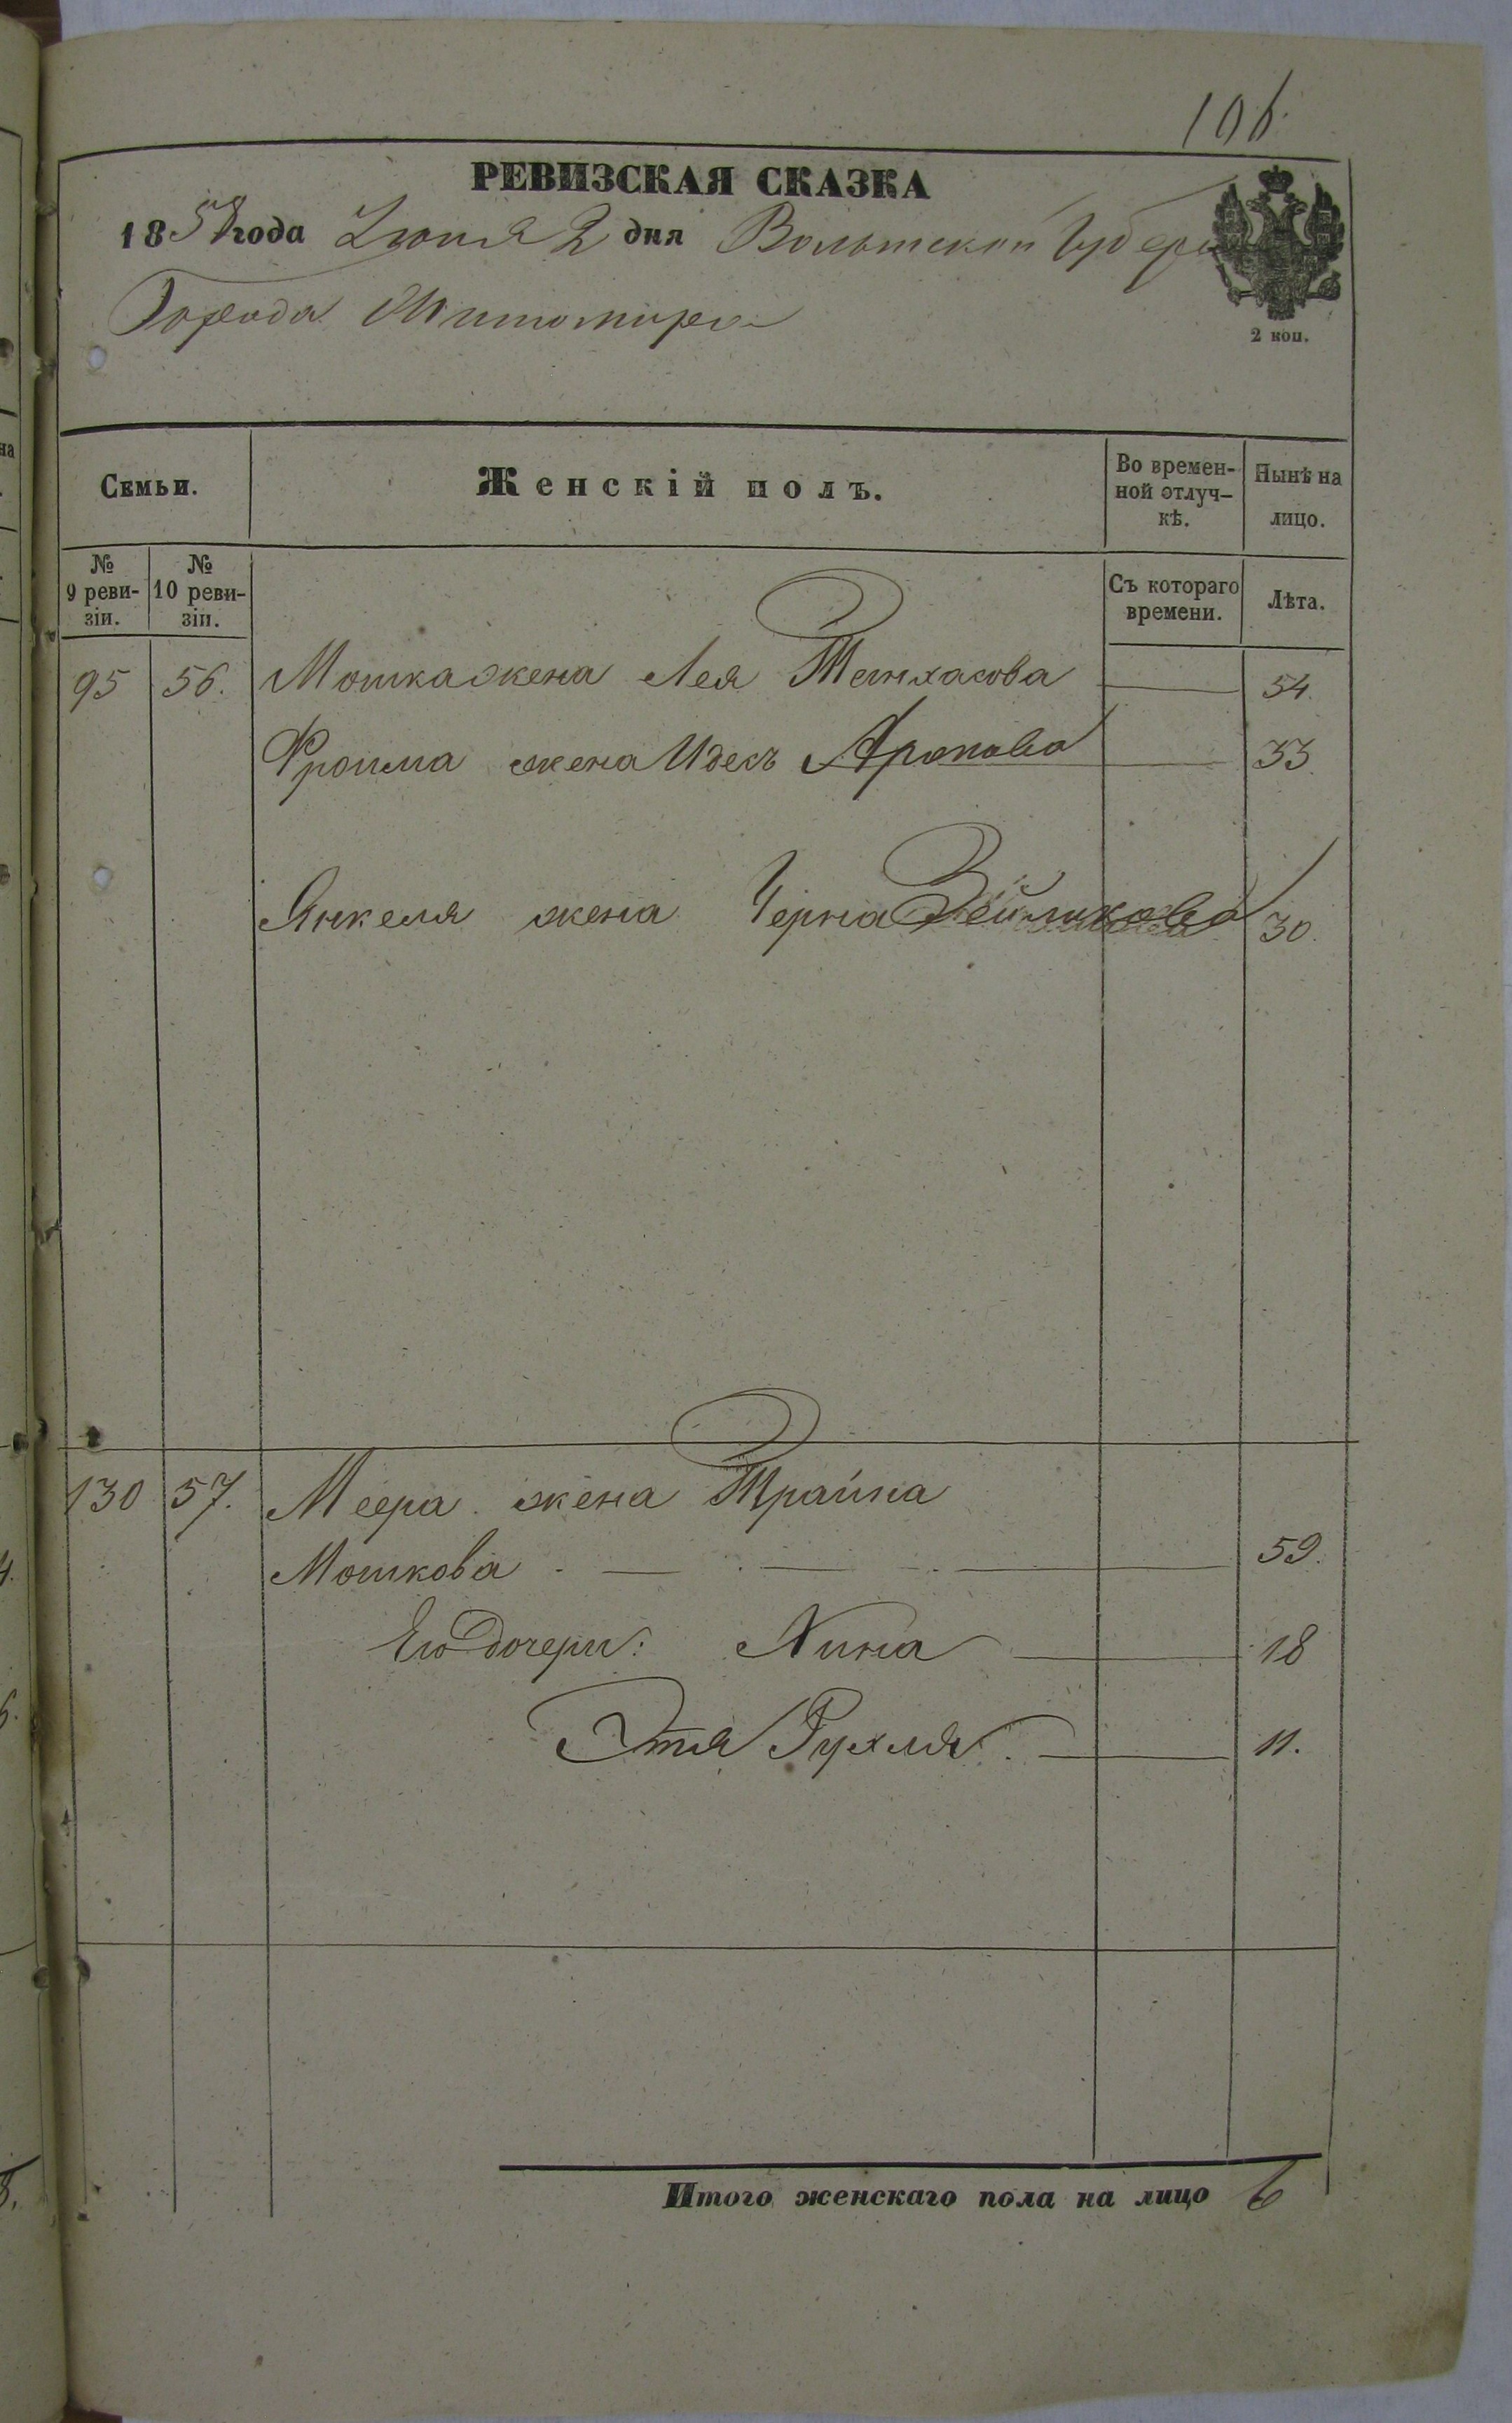 106.
РЕВИЗСКАЯ СКАЗКА
1858 года Июня 2 дня Волынской Губерніи
Города Житомира
2 коп.
Семьи.
Женскій полъ.
Во времен-
ной отлуч-
кѣ.
Нынѣ на
лицо.
№
9 реви-
зіи.
№
10 реви-
зіи.
Съ котораго
времени.
Лѣта.
95 56. Мошка жена Лея Пинхасова 54.
Фроима жена Идесъ Аронова 33.
Янкеля жена Черна Зейликова 30.
130 57. Меера жена Трайна
Мошкова 59.
Его дочери: Хина 18
Этя Рухля 11.
Итого женскаго пола на лицо 6